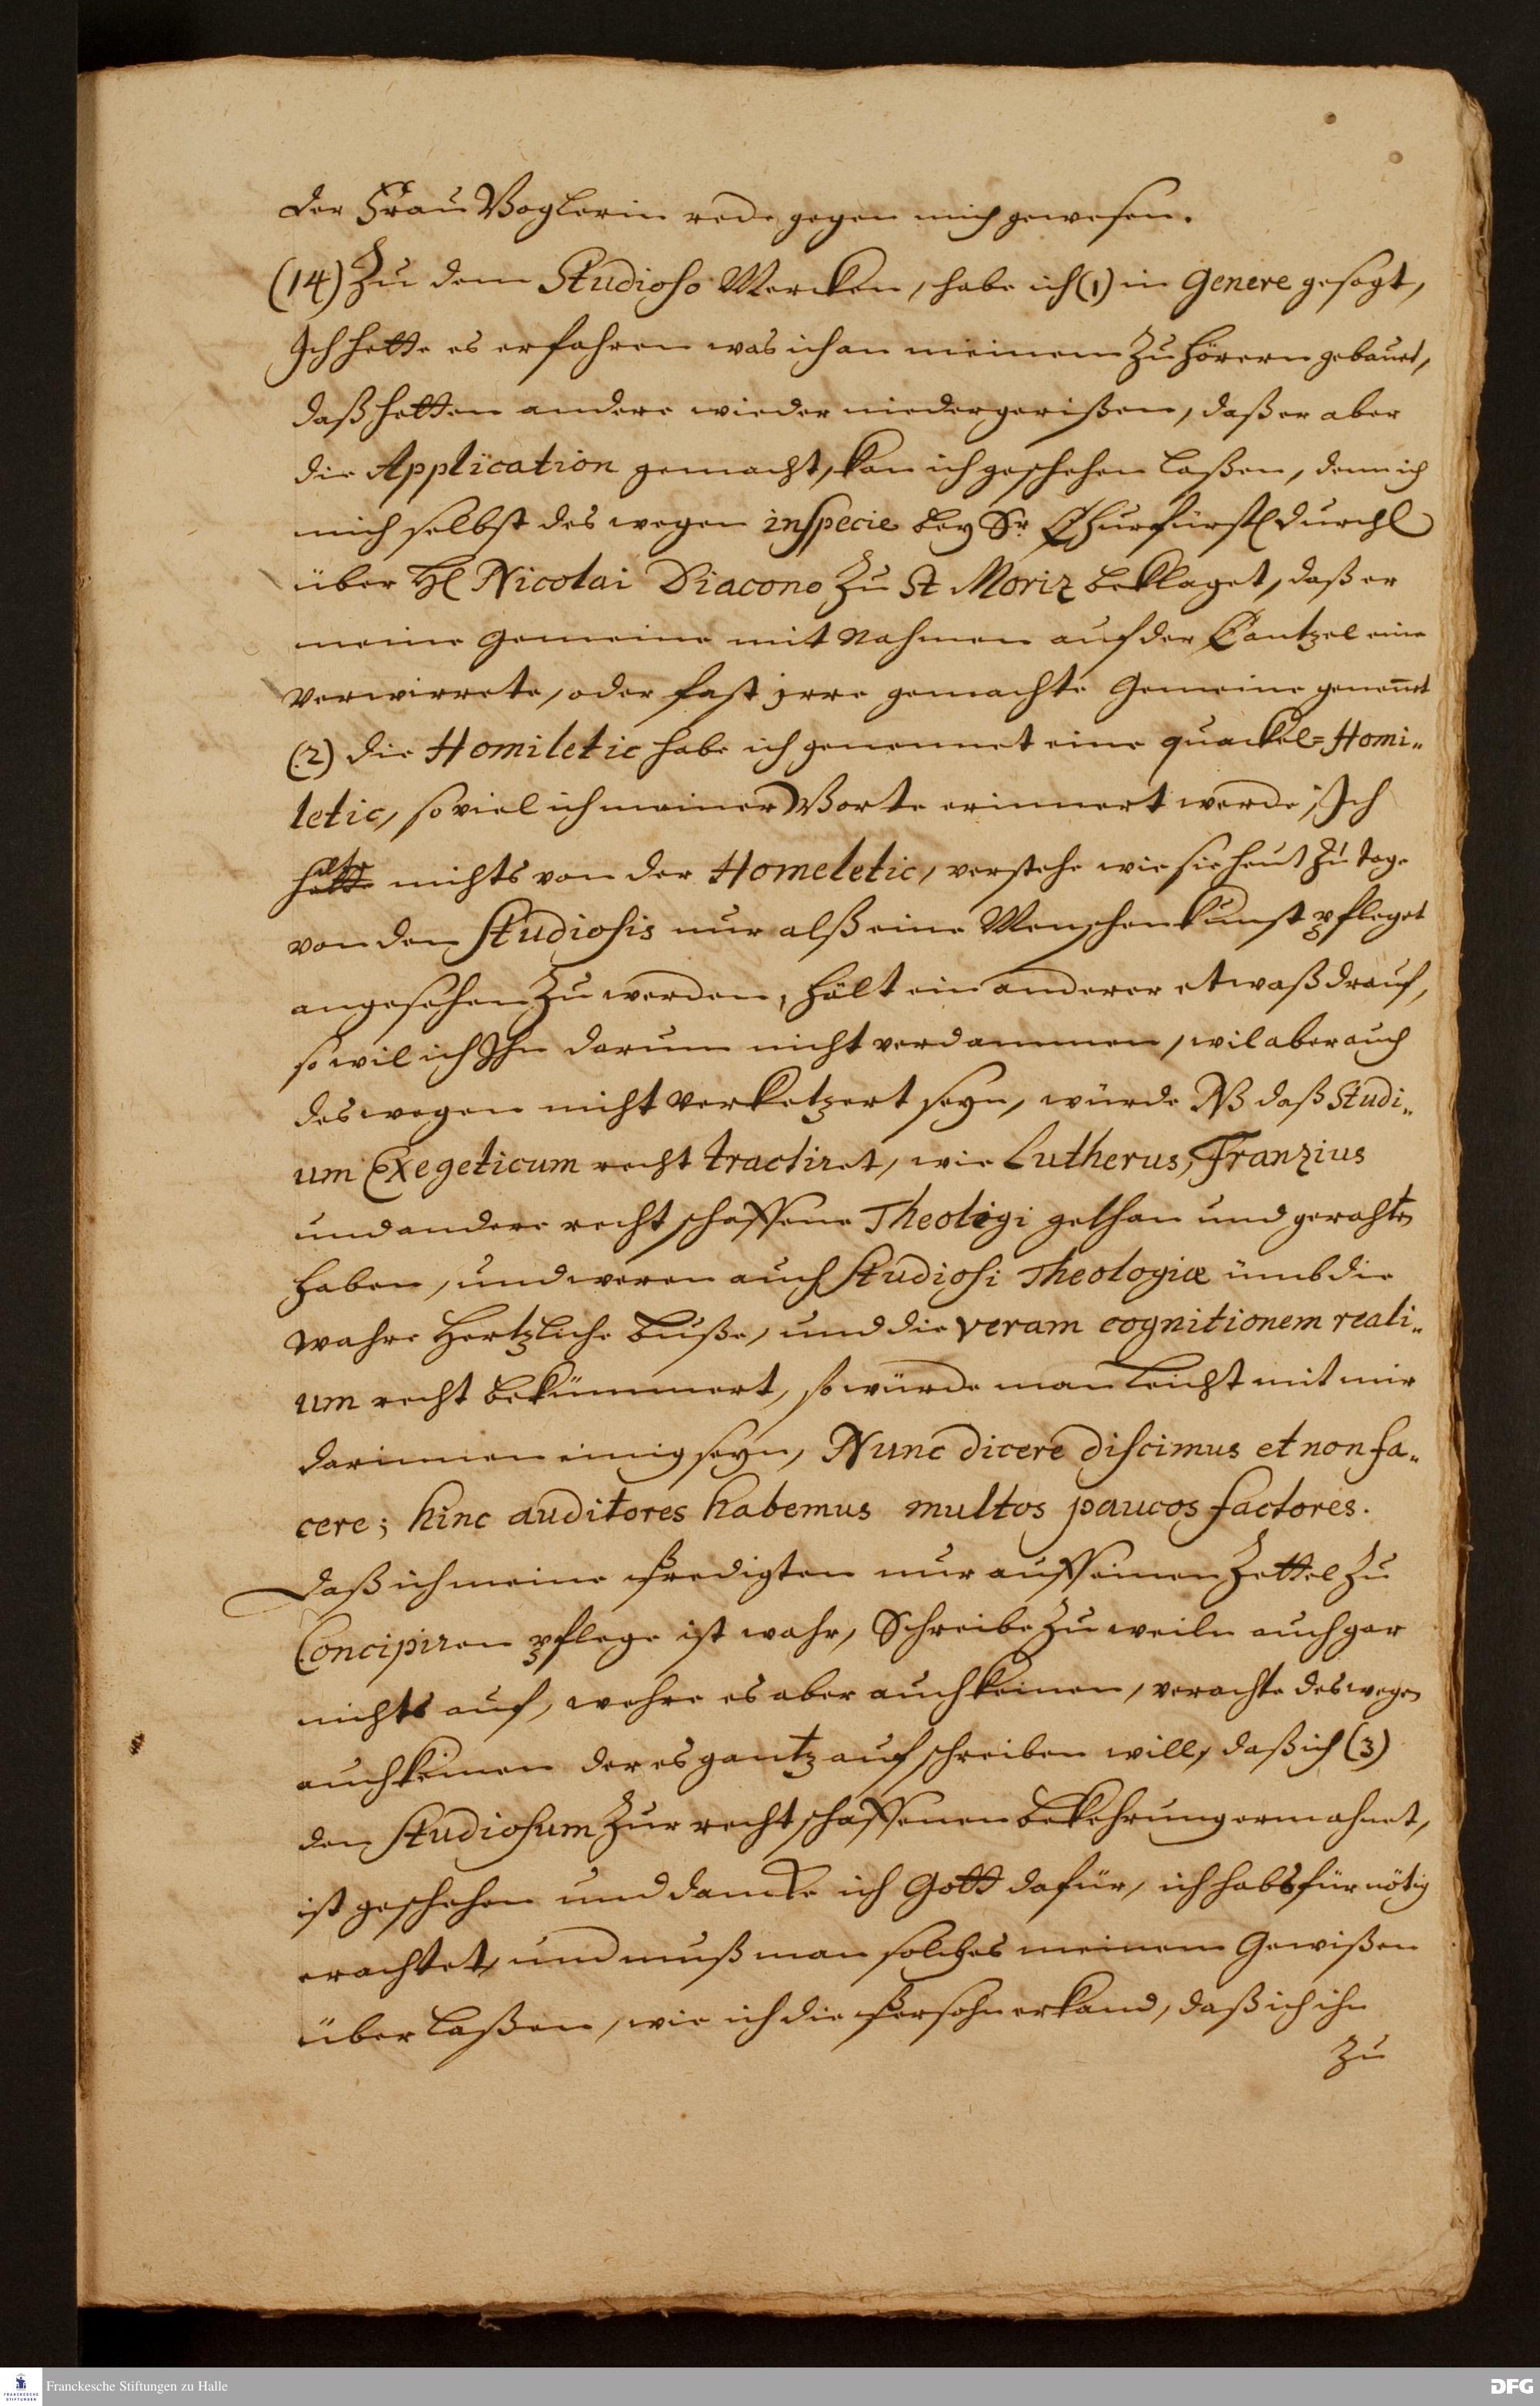 der Frau Voglerin rede gegen mich gewesen.
(14) Zu dem Studioso Mercken, habe ich (1) in Genere gesagt,
Ich hette es erfahren was ich an meinem Zuhörern gebauet,
daß hetten andere wieder niedergerißen, daß er aber
die Application gemacht, kan ich geschehen laßen, denn ich
mich selbst des wegen inspecie bey Sr. Churfürstl Durchl
über HE Nicolai Diacono Zu St Moriz beklaget, daß er
meine Gemeine mit Nahmen auf der Cantzel eine
verwirrete, oder fast jrre gemachte Gemeine genennet
(2) die Homiletic habe ich genennet eine quackel=Homi„
letic, so viel ich meiner Worte erinnert werde, Ich
halte nichts von der Homeletic, verstehe wie sie heut Zu tage
von den Studiosis nur alß eine Menschen Kunst pfleget
angesehen Zu werden, hält ein anderer etwaß drauf,
so wil ich Ihn darum nicht verdammen, wil aber auch
des wegen nicht verketzert seyn, würde NB daß Studi„
um Exegeticum recht tractiret, wie Lutherus, Franzius
und andere recht schaffene Theologi gethan und gerahten
haben, und weren auch Studiosi Theologiæ ümb die
wahre Hertzliche Buße, und die veram cognitionem reali„
um recht bekümmert, so würde man leicht mit mir
darinnen einig seyn, Nunc dicere discimus et non fa„
cere; hinc auditores habemus multos paucos factores.
Daß ich meine Predigten nur auff einen Zettel Zu
Concipiren pflege ist wahr, Schreibe Zu weiln auch gar
nichts auf, wehre es aber auch keinen, verachte des wegen
auch keinen der es gantz auf schreiben will, daß ich (3)
den Studiosum Zur recht schaffenen bekehrung ermahnet,
ist geschehen und dancke ich Gott dafür, ich habs für nötig
erachtet, und muß man solches meinem Gewißen
über laßen, wie ich die Persohn erkand, daß ich ihn
Zu
Franckesche Stiftungen zu Halle
FRANCKESCHE STIFTUNGEN
DFG